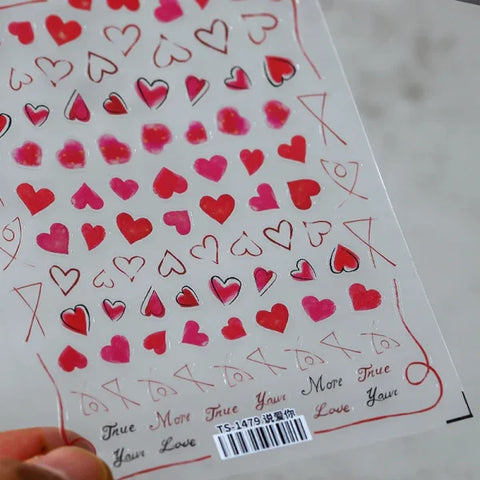 True More True Your More True
Your Love Love Your
TS-1479 说爱你